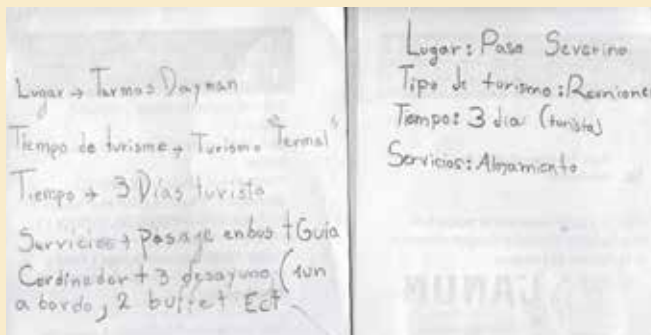 Lugar → Termas Dayman
Tiempo de turismo → Turismo "Termal"
Tiempo → 3 Días turista
Servicios → Pasaje en bus + Guía
Cordinador + 3 desayuno (1 un
a bordo, 2 buffet Ect
Lugar: Paso Severino
Tipo de turismo: Reuniones
Tiempo: 3 dia (turista)
Servicios: Alojamiento